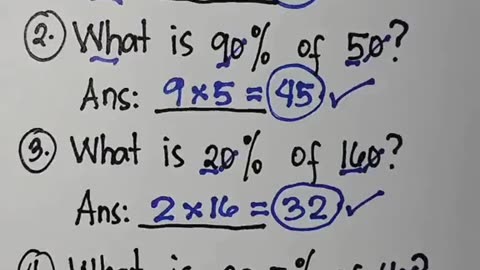 2. What is 90% of 50?
Ans: 9×5 = 45 ✓
3. What is 20% of 160?
Ans: 2×16 = 32 ✓
What is